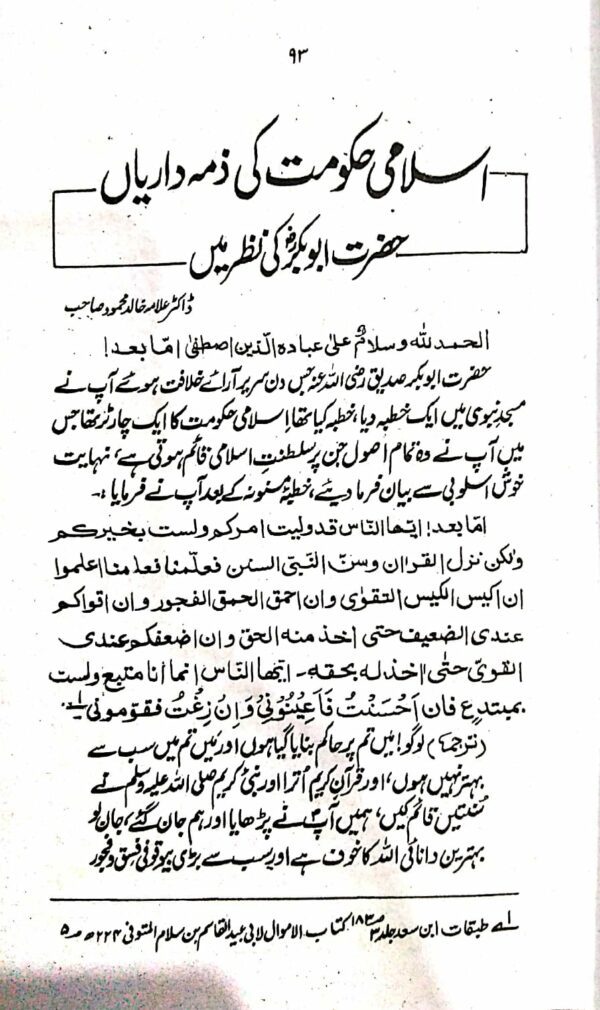 ۹۳
اسلامی حکومت کی ذمہ داریاں
حضرت ابوبکرؓ کی نظر میں
ڈاکٹر علامہ خالد محمود صاحب
الحمد للہ وسلامٌ علیٰ عبادہ الّذین اصطفیٰ امّا بعد!
حضرت ابوبکر صدیق رضی اللہ عنہ جس دن سریر آرائے خلافت ہوئے آپ نے
مسجد نبوی میں ایک خطبہ دیا، خطبہ کیا تھا اسلامی حکومت کا ایک چارٹر تھا جس
میں آپ نے وہ تمام اصول جن پر سلطنت اسلامی قائم ہوتی ہے، نہایت
خوش اسلوبی سے بیان فرما دیئے، خطبۂ مسنونہ کے بعد آپ نے فرمایا :۔
امّا بعد! ایّھا النّاس قد ولیت امرکم ولست بخیرکم
ولکن نزل القراٰن وسنّ النّبیّ السنن فعلّمنا فعلمنا اعلموا
ان اکیس الکیس التقوٰی وان احمق الحمق الفجور وان اقواکم
عندی الضعیف حتی اٰخذ منہ الحق وان اضعفکم عندی
القویّ حتّٰی اٰخذ لہ بحقہ۔ ایّھا النّاس انما أنا متبع ولست
بمبتدع فان اَحْسَنْتُ فَاَعِیْنُوْنِیْ وَاِنْ زِغْتُ فقوّمونی لہ
(ترجمہ) لوگو! میں تم پر حاکم بنایا گیا ہوں اور میں تم میں سب سے
بہتر نہیں ہوں، اور قرآن کریم اُترا اور نبیٔ کریم صلی اللہ علیہ وسلم نے
سُنتیں قائم کیں، ہمیں آپؐ نے پڑھایا اور ہم جان گئے، جان لو
بہترین دانائی اللہ کا خوف ہے اور سب سے بڑی بیوقوفی فسق و فجور
لہ طبقات ابن سعد جلد ۳ صـ۱۸۲ کتاب الاموال لابی عبید القاسم بن سلام المتوفی ۲۲۴ھ صـ۵